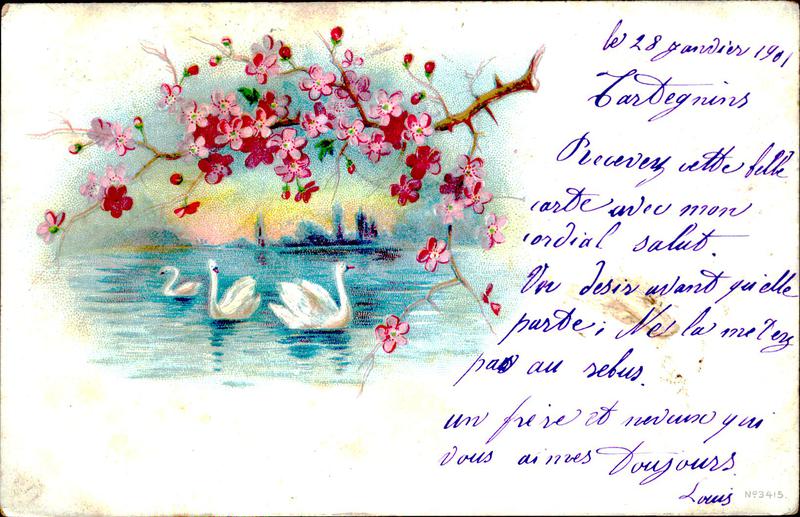 le 28 janvier 1901
Tartegnins
Recevez cette belle
carte avec mon
cordial salut.
Un desir avant qu'elle
parte; Ne la metez
pas au rebus.
un frère et neveux qui
vous aimes Toujours.
Louis
No 3415.